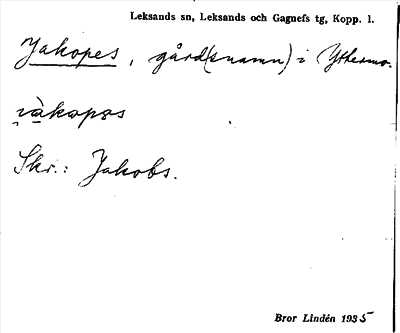 Leksands sn, Leksands och Gagnefs tg, Kopp. l.
Jakopes, gård(snamn) i Yttermo.
Skr.: Jakobs.
Bror Lindén 1935